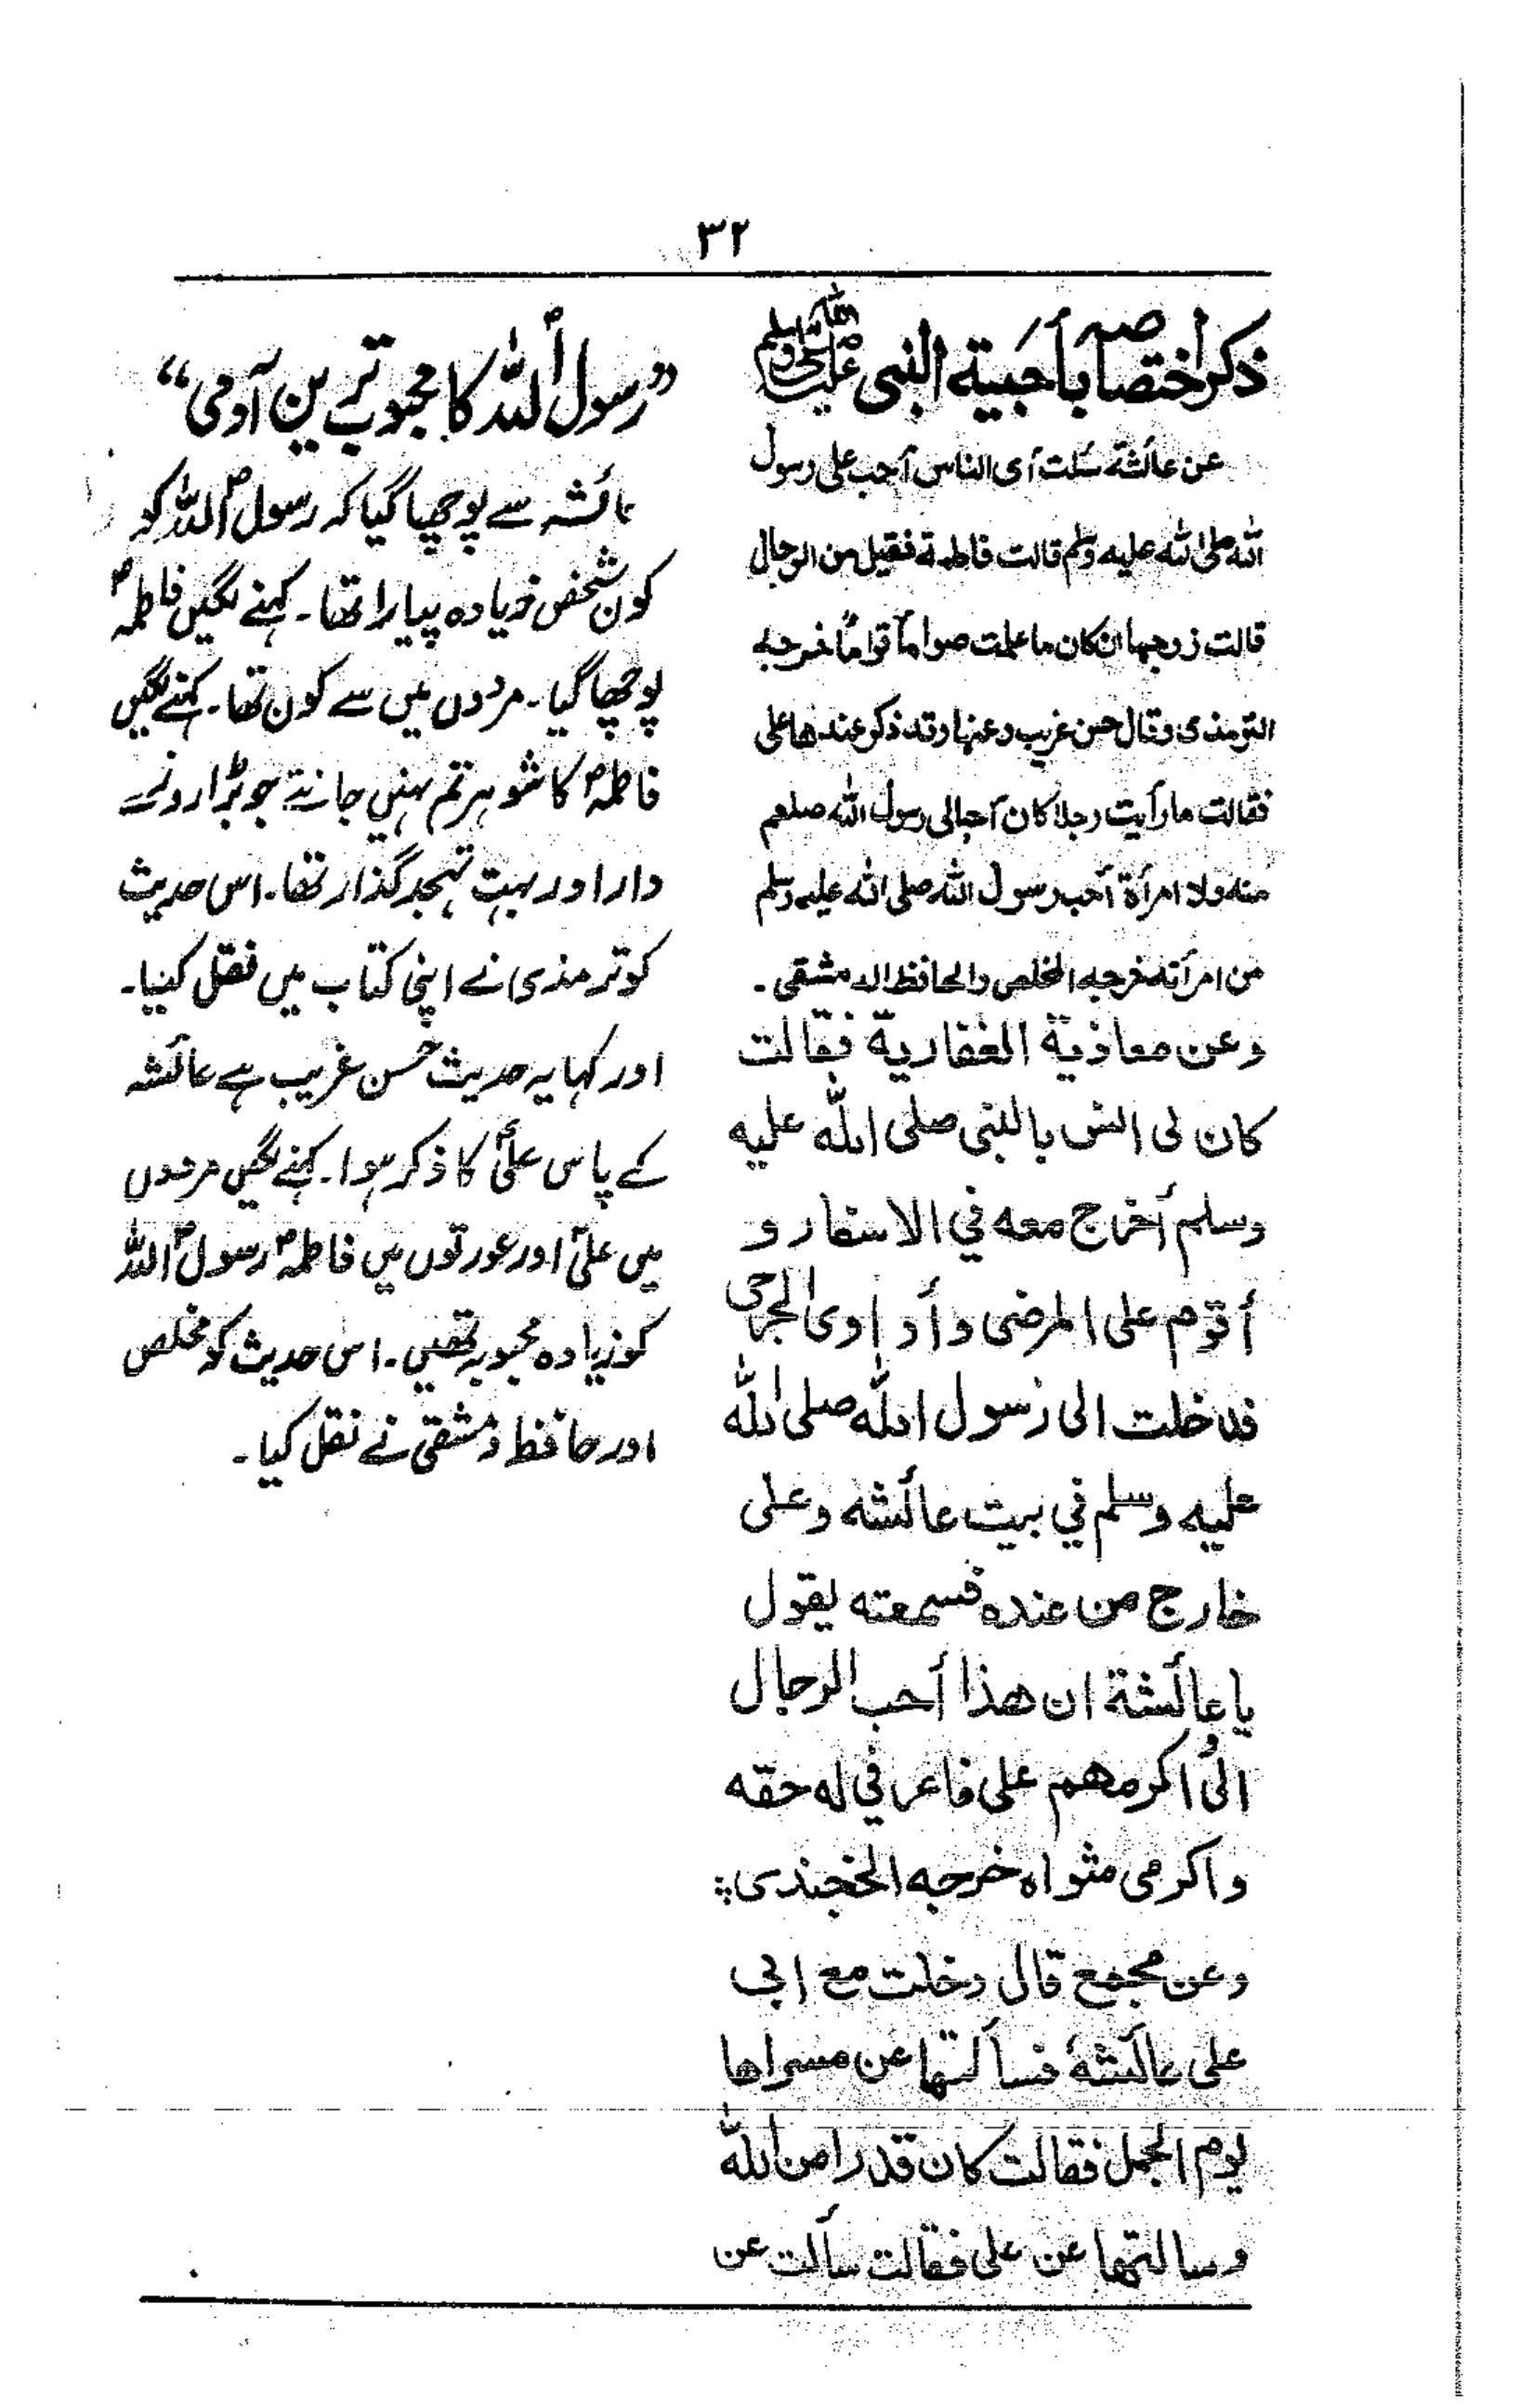 ۳۲
ذکر اختصاصہ بأحبیة النبی صلی اللہ علیہ وسلم
عن عائشة سُئلت أی الناس أحب علی رسول
اللہ صلی اللہ علیہ وسلم قالت فاطمة فقیل من الرجال
قالت زوجها ان کان ما علمت صواماً قواماً خرجہ
الترمذی وقال حسن غریب وعنها وقد ذکر عندها علی
فقالت ما رأیت رجلا کان أحب الی رسول اللہ صلعم
منه ولا امرأة أحب رسول اللہ صلی اللہ علیہ وسلم
من امرأتہ خرجہ المخلص والحافظ الدمشقی۔
وعن معاذیة الغفاریة فقالت
کان لی انس بالنبی صلی اللہ علیہ
وسلم أخرج معه في الاسفار و
أقوم علی المرضی وأداوی الجرحی
فدخلت الی رسول اللہ صلی اللہ
علیہ وسلم في بیت عائشہ وعلی
خارج من عنده فسمعته یقول
یا عائشة ان هذا أحب الرجال
الیّ واکرمهم علی فاعرفي له حقّه
واکرمی مثواه خرجه الخجندی؛
وعن مجمع قال دخلت مع ابی
علی عائشة فسألتها عن مسراها
یوم الجمل فقالت کان قدرا من اللہ
وسالتها عن علی فقالت سألت عن
”رسول اللہ کا محبوب ترین آدمی“
عائشہ سے پوچھا گیا کہ رسول اللہ کو
کون شخص زیادہ پیارا تھا۔ کہنے لگیں فاطمہؑ
پوچھا گیا۔ مردوں میں سے کون تھا۔ کہنے لگیں
فاطمہؑ کا شوہر تم نہیں جانتے جو بڑا روزے
دار اور بہت تہجد گذار تھا۔ اس حدیث
کو ترمذی نے اپنی کتاب میں نقل کیا۔
اور کہا یہ حدیث حسن غریب ہے عائشہ
کے پاس علیؑ کا ذکر ہوا۔ کہنے لگیں مردوں
میں علیؑ اور عورتوں میں فاطمہؑ رسول اللہ
کو زیادہ محبوبہ تھیں۔ اس حدیث کو مخلص
اور حافظ دمشقی نے نقل کیا۔